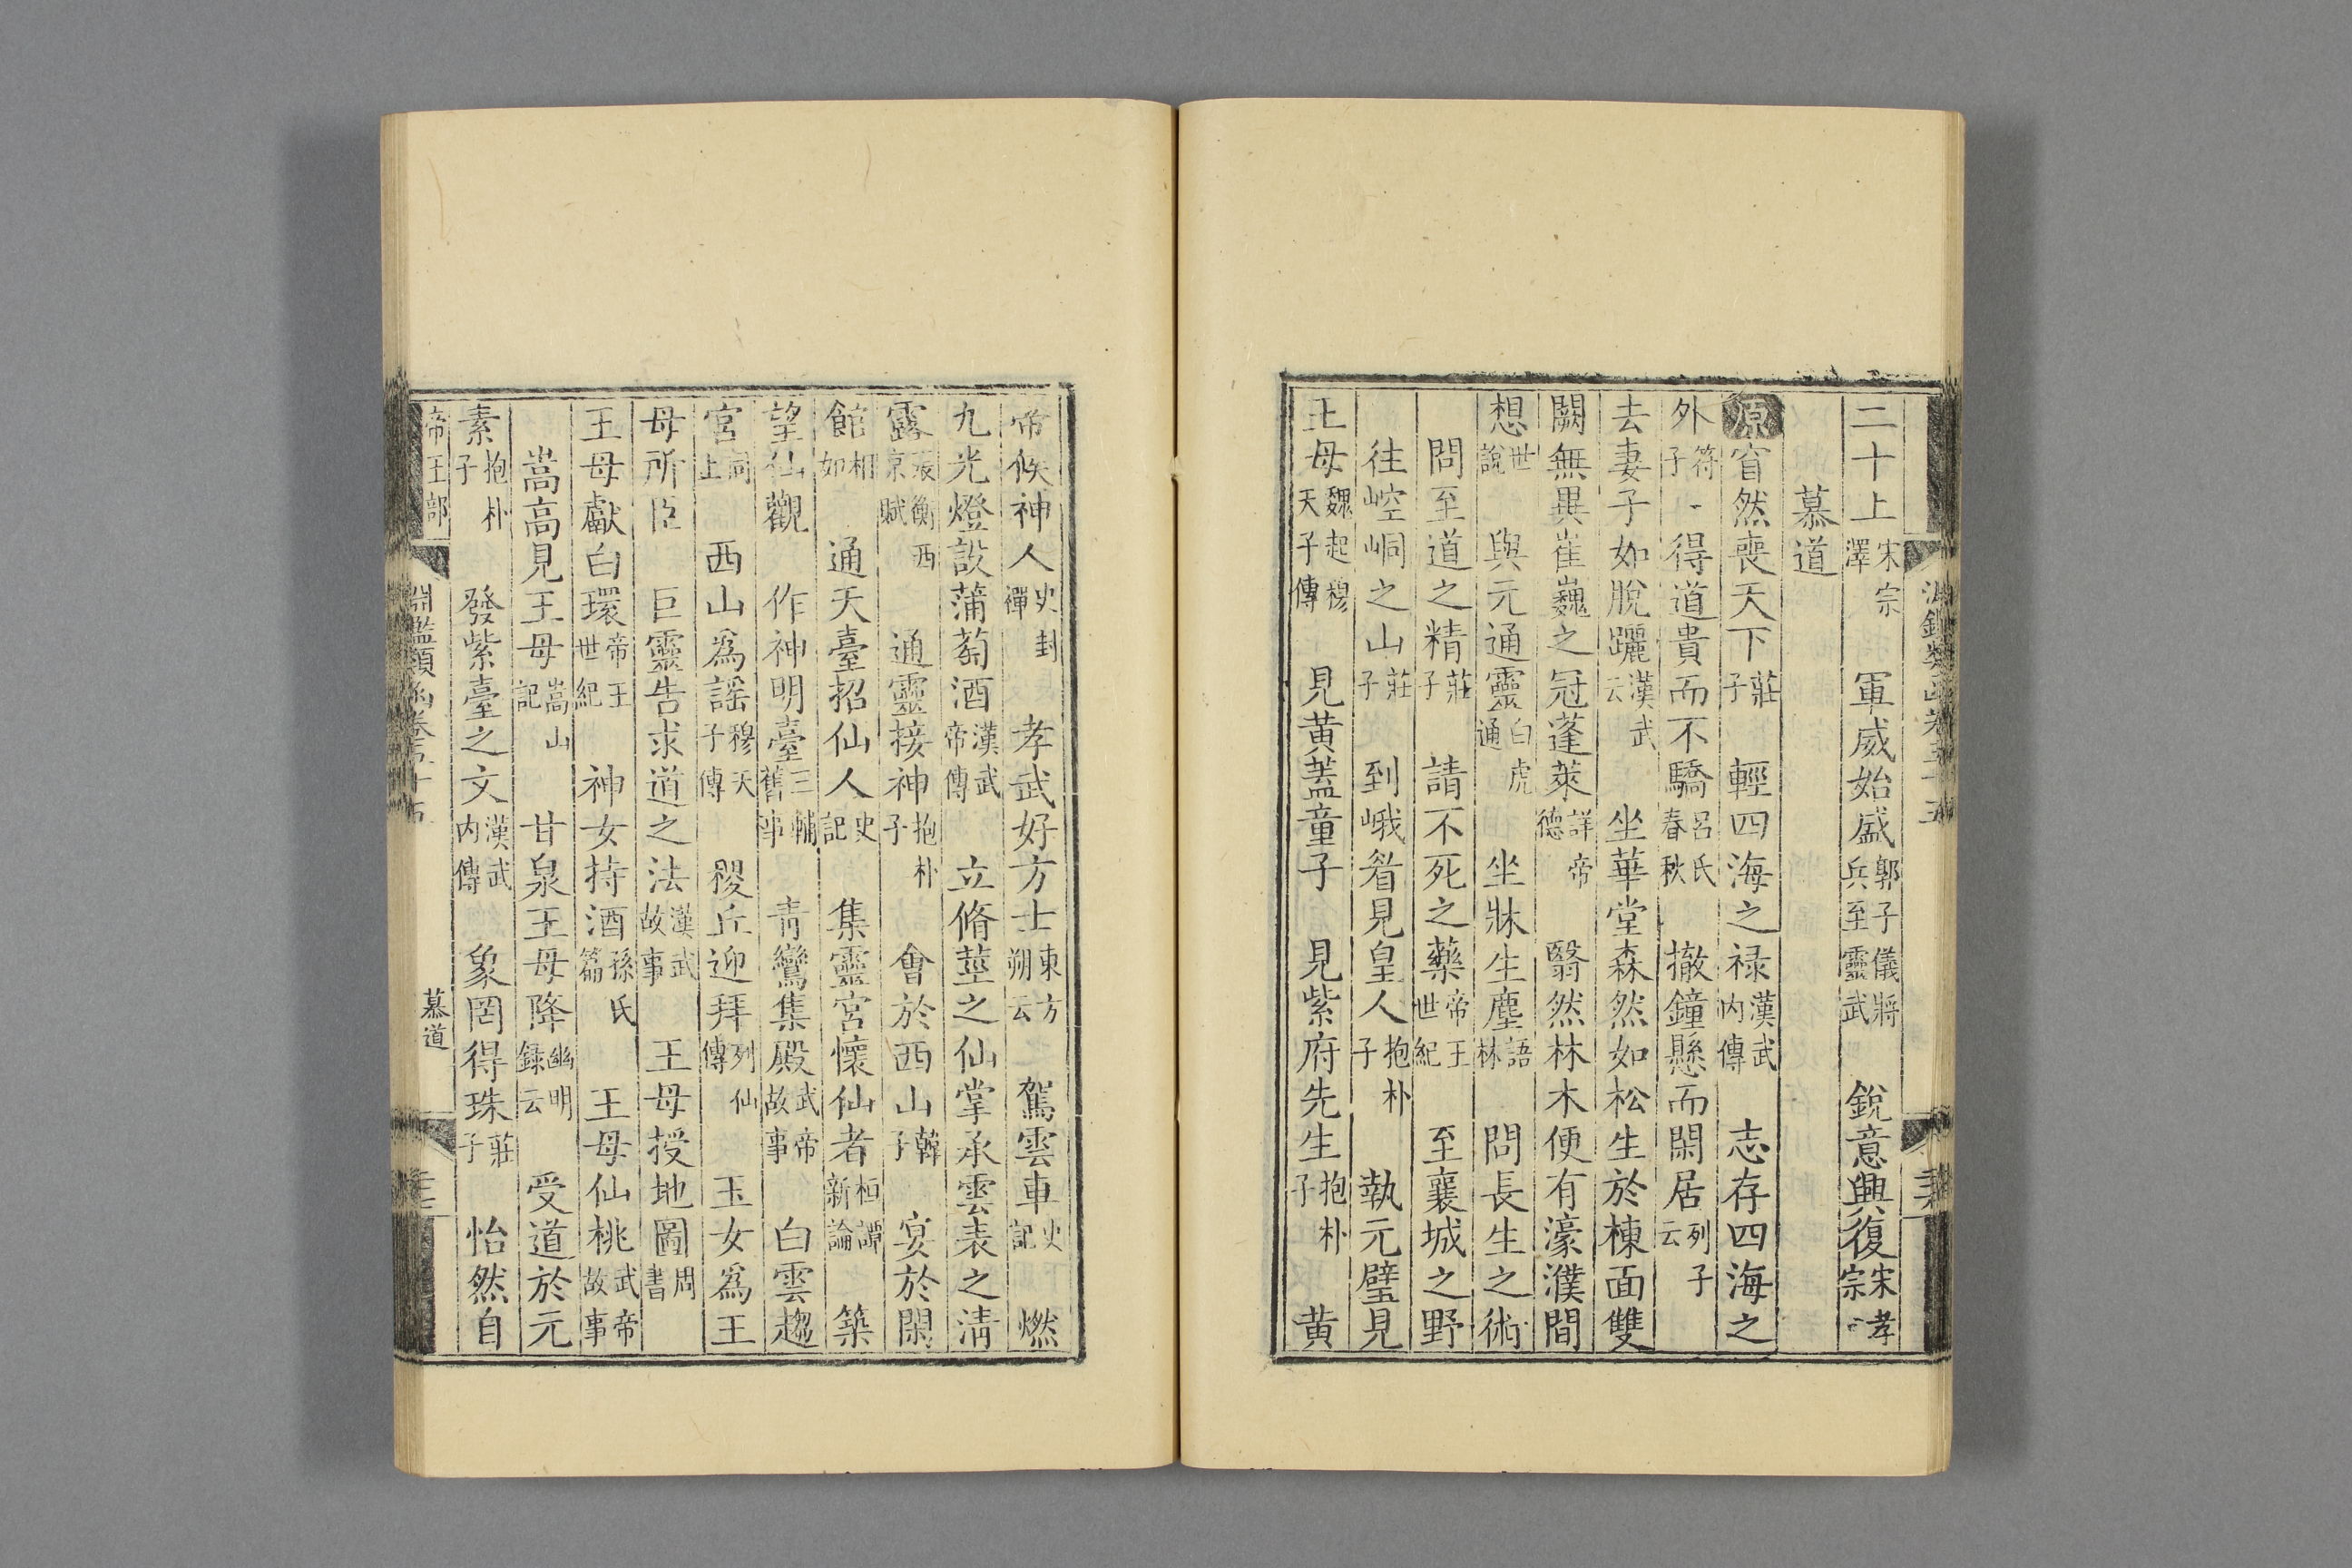 二十上宋宗澤 軍威始盛郭子儀將兵至靈武 銳意興復宋孝宗
慕道
原窅然喪天下莊子 輕四海之禄漢武内傳 志存四海之
外符子 得道貴而不驕呂氏春秋 撤鐘懸而閑居列子云
去妻子如脫躧漢武云 坐華堂森然如松生於棟面雙
闕無異崔巍之冠蓬萊詳帝德 翳然林木便有濠濮間
想世說 與元通靈白虎通 坐牀生塵語林 問長生之術
問至道之精莊子 請不死之藥帝王世紀 至襄城之野
往崆峒之山莊子 到峨眉見皇人抱朴子 執元璧見
王母魏起穆天子傳 見黄蓋童子 見紫府先生抱朴子 黄
帝候神人史封禪 孝武好方士東方朔云 駕雲車史記 燃
九光燈設蒲萄酒漢武帝傳 立脩莖之仙掌承雲表之淸
露張衡西京賦 通靈接神抱朴子 會於西山韓子 宴於閑
館相如 通天臺招仙人史記 集靈宮懷仙者桓譚新論 築
望仙觀 作神明臺三輔舊事 青鸞集殿武帝故事 白雲趨
宮同上 西山爲謡穆天子傳 稷丘迎拜列仙傳 玉女爲王
母所臣 巨靈告求道之法漢武故事 王母授地圖周書
王母獻白環帝王世紀 神女持酒孫氏篇 王母仙桃武帝故事
嵩高見王母嵩山記 甘泉王母降幽明錄云 受道於元
素抱朴子 發紫臺之文漢武内傳 象罔得珠莊子 怡然自
帝王部 淵鑑類函卷五十五 慕道